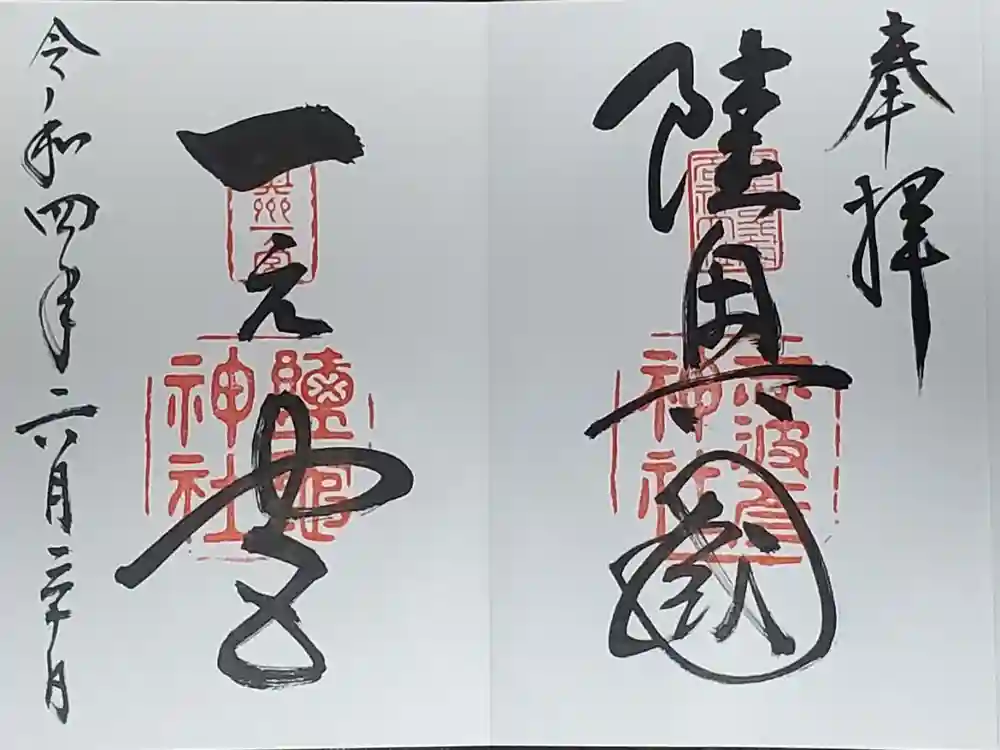 奉拝
陸奥國
志波彦
神社
一之宮
奥州一宮
鹽竈
神社
令和四年六月二十日